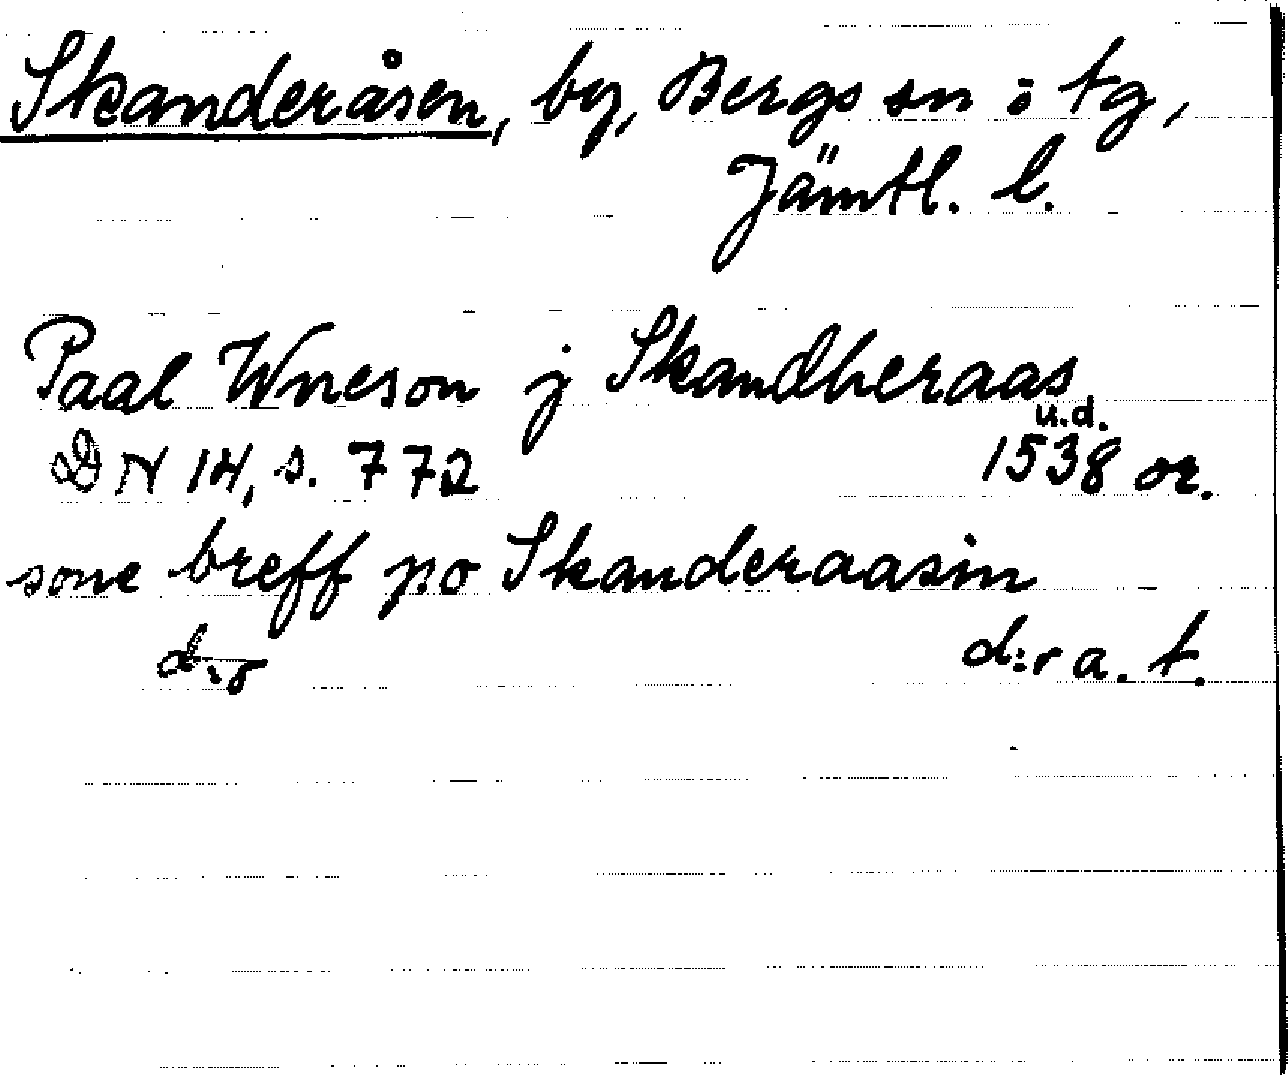 Skanderåsen, by, Bergs sn o tg,
Jämtl. l.
Paal Wneson j Skandheraas
u.d.
DN 14, s. 772 1538 or.
some breff po Skanderaasin
d:o d:r a. t.